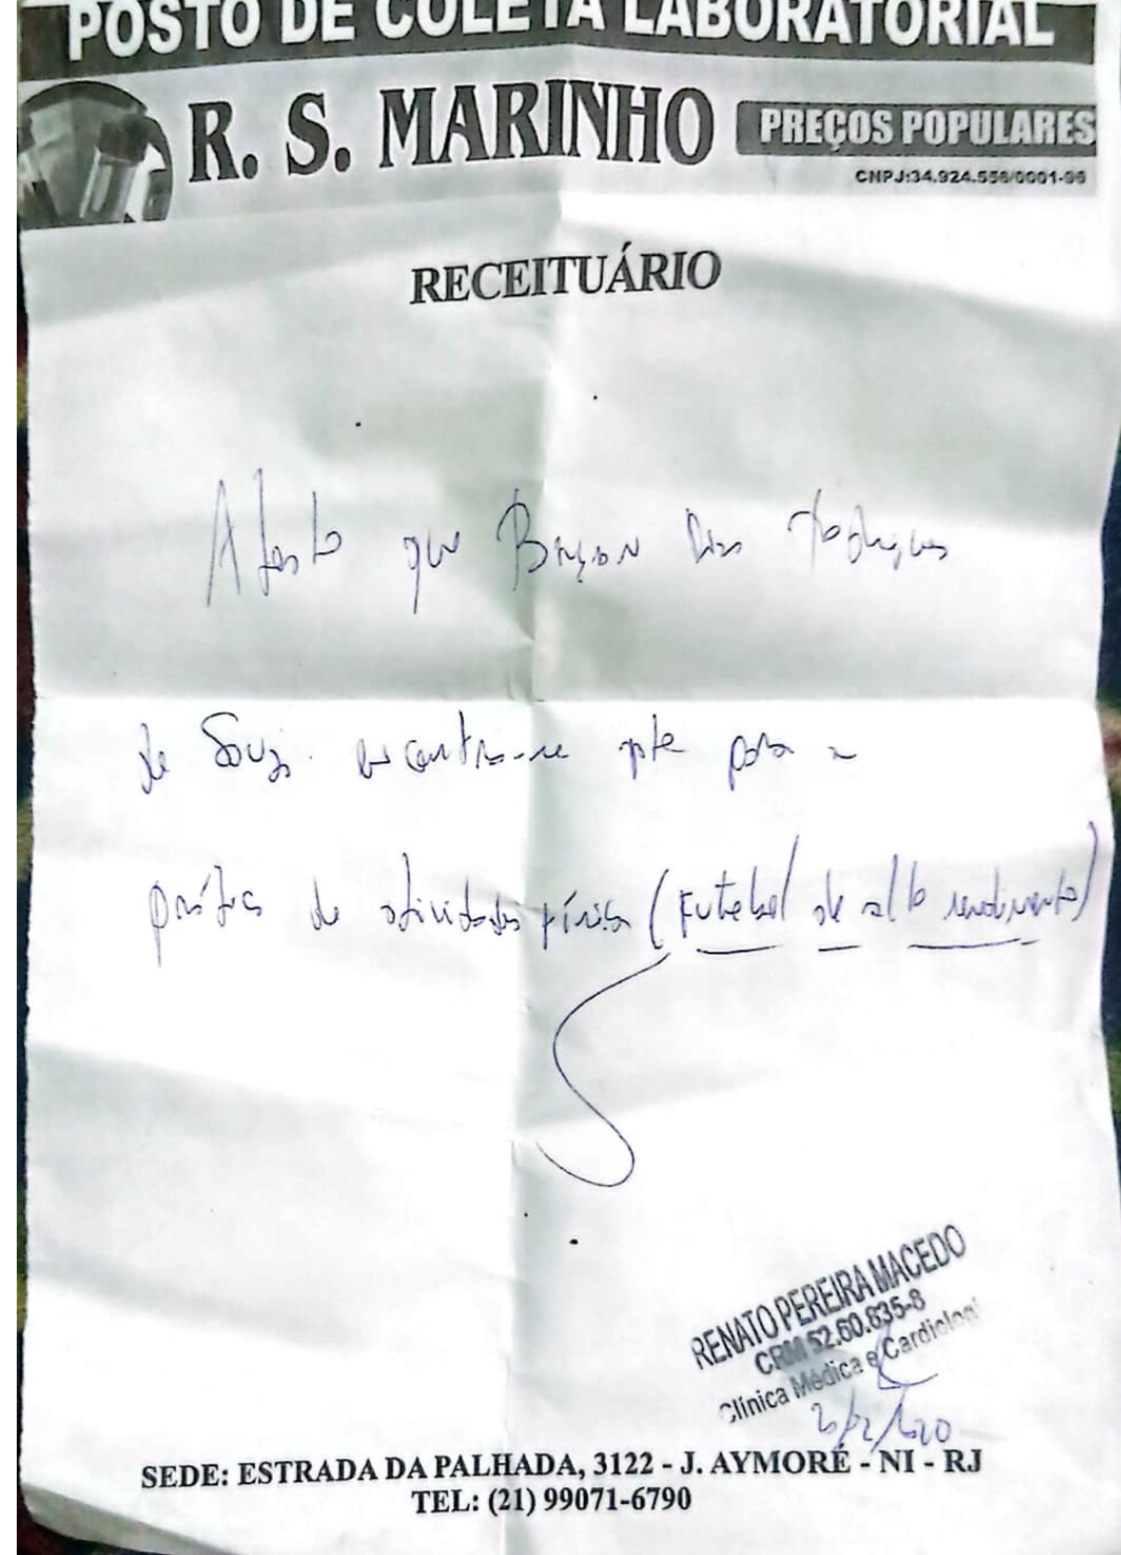 POSTO DE COLETA LABORATORIAL
R. S. MARINHO PREÇOS POPULARES
CNPJ:34.924.556/0001-96
RECEITUÁRIO
Atesto que Dias Rodrigues
de Souza encontra-se apto para a
prática de atividades física (Futebol de alto rendimento)
RENATO PEREIRA MACEDO
CRM 52.60.835-8
Clínica Médica e Cardiologi
SEDE: ESTRADA DA PALHADA, 3122 - J. AYMORÉ - NI - RJ
TEL: (21) 99071-6790